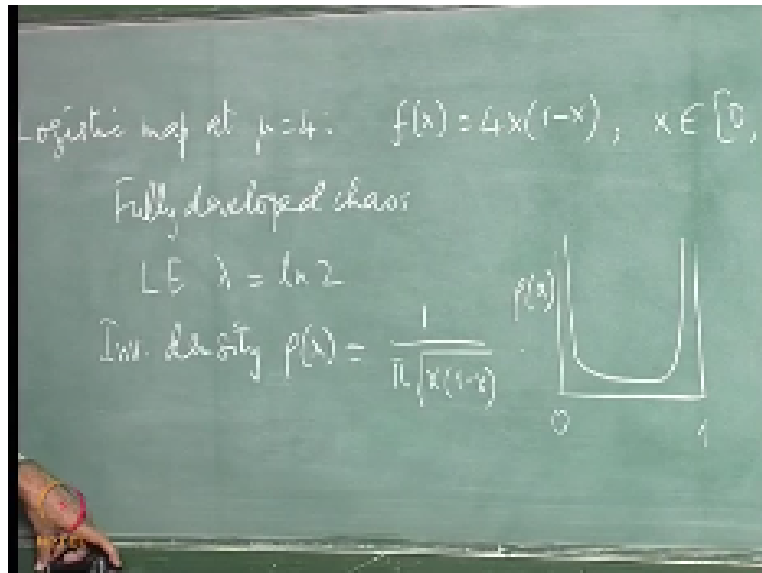 Logistic map at μ=4: f(x) = 4x(1-x), x ∈ [0,
Fully developed chaos
LE λ = ln 2
Inv. density ρ(x) = 1 / π√x(1-x)
ρ(x)
0 1